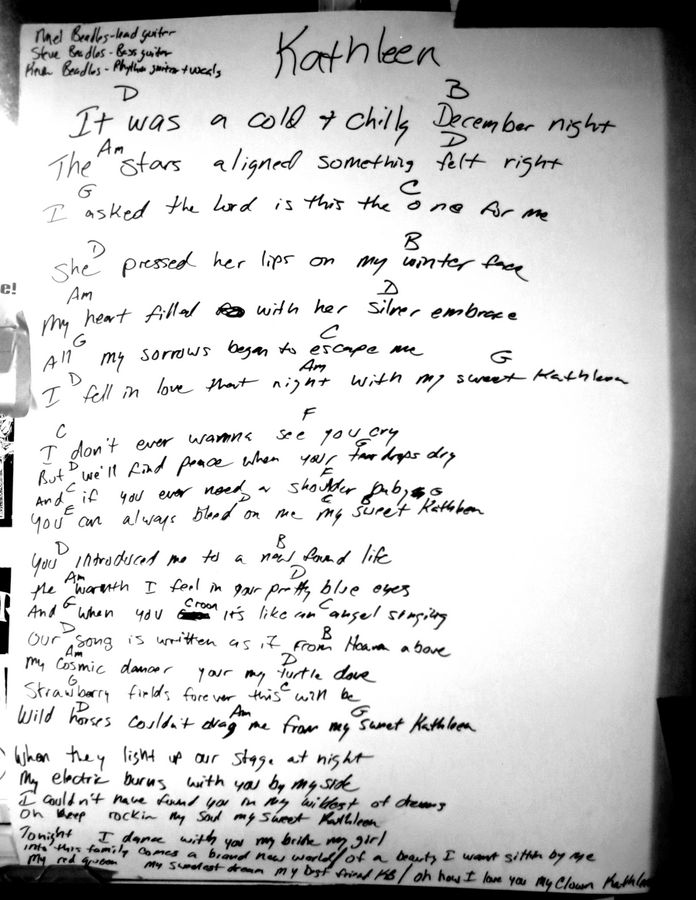 Noel Beadles - lead guitar
Steve Beadles - Bass guitar
Kevin Beadles - Rhythm guitar + vocals
Kathleen
D B
It was a cold + chilly December night
Am D
The stars aligned something felt right
G C
I asked the Lord is this the one for me
D B
She pressed her lips on my winter face
Am D
My heart filled with her silver embrace
G C
All my sorrows began to escape me
D Am G
I fell in love that night with my sweet Kathleen
C F
I don't ever wanna see you cry
D G
But we'll find peace when your tear drops dry
C F G
And if you ever need a shoulder baby
E D C B
You can always bleed on me my sweet Kathleen
D B
You introduced me to a new found life
Am D
The warmth I feel in your pretty blue eyes
G C
And when you croon it's like an angel singing
D B
Our song is written as if from Heaven above
Am D
My Cosmic dancer your my turtle dove
G C
Strawberry fields forever this will be
D Am G
Wild horses couldn't drag me from my sweet Kathleen
When they light up our stage at night
My electric burns with you by my side
I couldn't have found you in my wildest of dreams
Oh keep rockin my soul my sweet Kathleen
Tonight I dance with you my bride my girl
Into this family comes a brand new world / of a beauty I want sittin by me
My red queen my sweetest dream my best friend / oh how I love you my Clown Kathleen
e!